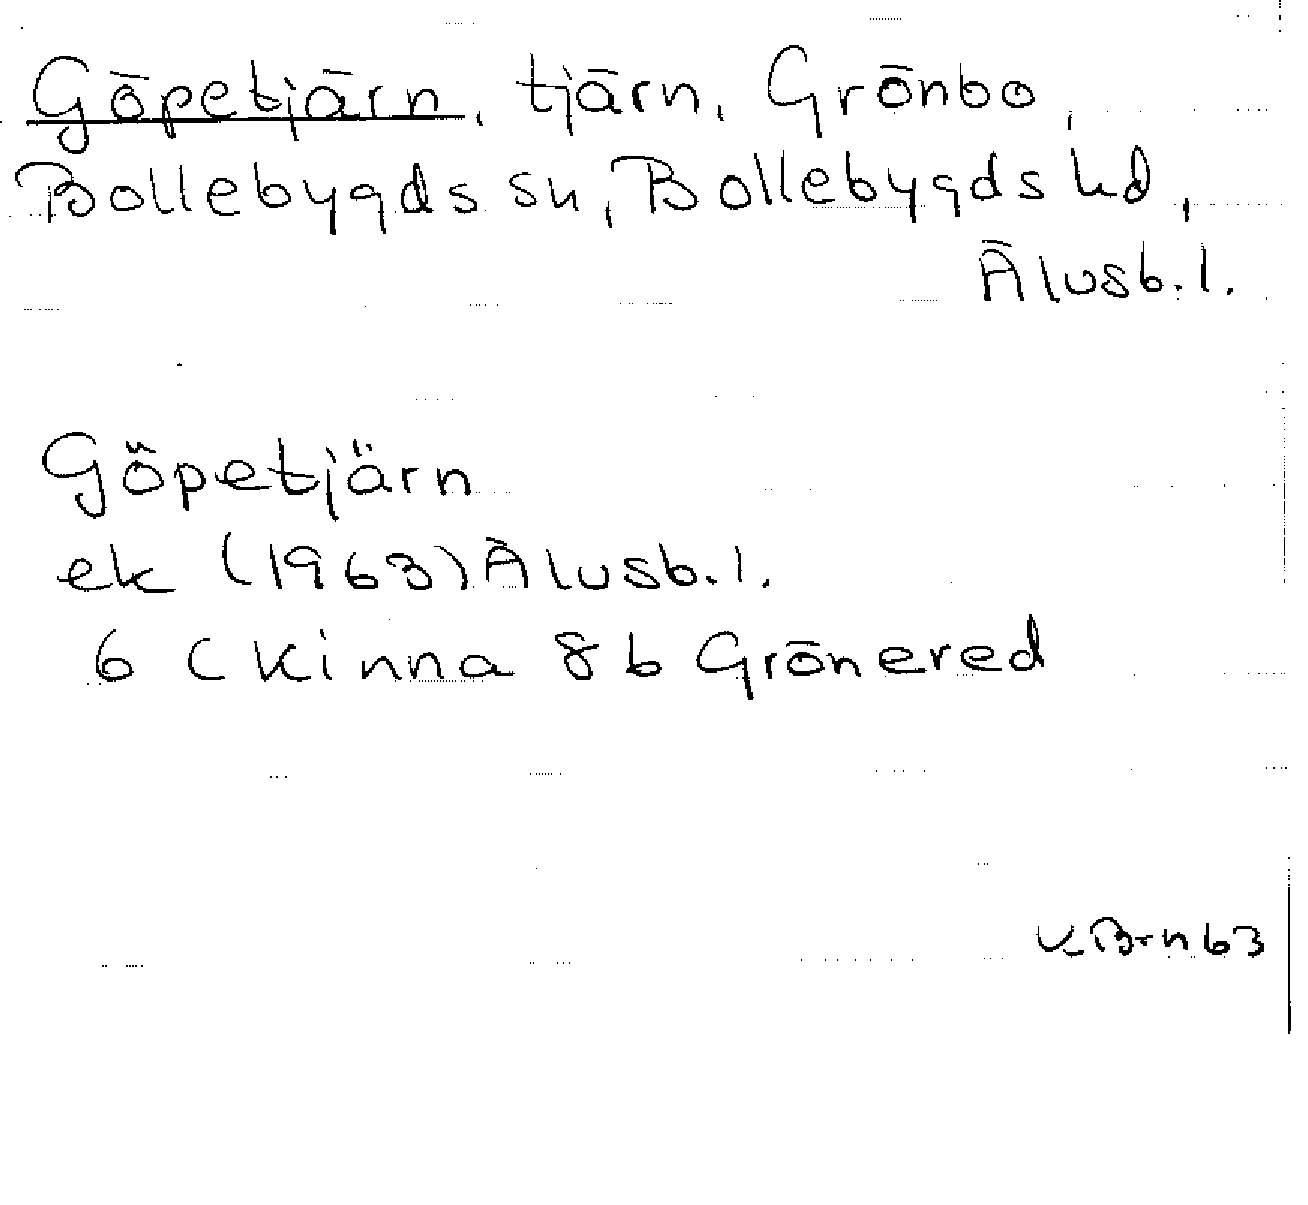 Göpetjärn, tjärn, Grönbo,
Bollebygds sn, Bollebygds hd,
Älvsb. l.
Göpetjärn
ek (1963) Älvsb. l.
6 C Kinna 8 b Grönered
KBrn 63